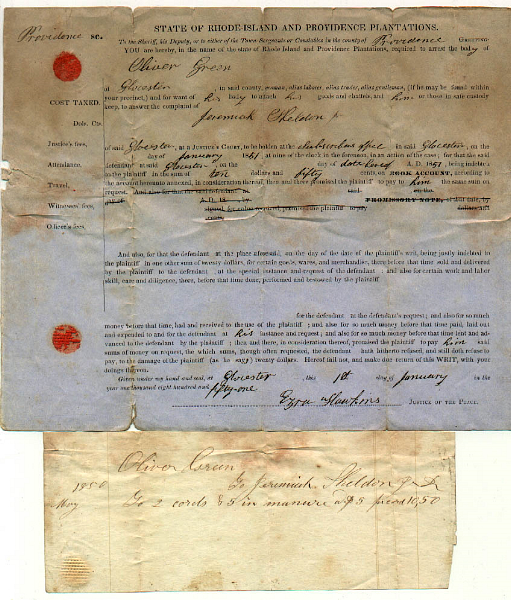 STATE OF RHODE-ISLAND AND PROVIDENCE PLANTATIONS.
Providence sc.
To the Sheriff, his Deputy, or to either of the Town-Sergeants or Constables in the county of Providence GREETING:
YOU are hereby, in the name of the state of Rhode Island and Providence Plantations, required to arrest the body of
Oliver Green
of Glocester in said county, (if he may be found within
your precinct,) and for want of his body to attach his goods and chattels, and him or those in safe custody
keep, to answer the complaint of
Jeremiah Sheldon
COST TAXED.
Dolls. Cts.
Justice's fees,
Attendance,
Travel,
Witnesses' fees,
Officer's fees,
of said Glocester, at a Justice's Court, to be holden at the office in said Glocester, on the
day of January 1851 at nine of the clock in the forenoon, in an action of the case; for that the said
defendant at said Glocester, on the day of date hereof A. D. 1851,
the plaintiff in the sum of ten dollars and fifty cents, on BOOK ACCOUNT, according to
the account hereunto annexed, in consideration thereof, then and there promised the plaintiff to pay to him the same sum on
request. And also for that said defendant
A. D. 18 , by PROMISSORY NOTE, of that date, by
signed for value requested, promised the plaintiff to pay dollars and
cents,
And also, for that the defendant , at the place aforesaid, on the day of the date of the plaintiff's writ, being justly indebted to
the plaintiff in one other sum of twenty dollars, for certain goods, wares, and merchandise, there before that time sold and delivered
by the plaintiff to the defendant , at the special instance and request of the defendant ; and also for certain work and labor
skill, care and diligence, there, before that time done, performed and bestowed by the plaintiff
for the defendant at the defendant's request; and also for so much
money before that time, had and received to the use of the plaintiff ; and also for so much money before that time paid, laid out
and expended to and for the defendant at his instance and request; and also for so much money before that time lent and ad-
vanced to the defendant by the plaintiff ; then and there, in consideration thereof, promised the plaintiff to pay him said
sums of money on request, the which sums, though often requested, the defendant hath hitherto refused, and still doth refuse to
pay, to the damage of the plaintiff (as he says) twenty dollars. Hereof fail not, and make due return of this WRIT, with your
doings thereon.
Given under my hand and seal, at Glocester , this 1st day of January in the
year one thousand eight hundred and fifty-one
Ezra Hawkins JUSTICE OF THE PEACE.
Oliver Green
1850 To Jeremiah Sheldon Jr Dr
May To 2 cords & 5 in manure a $5 10,50